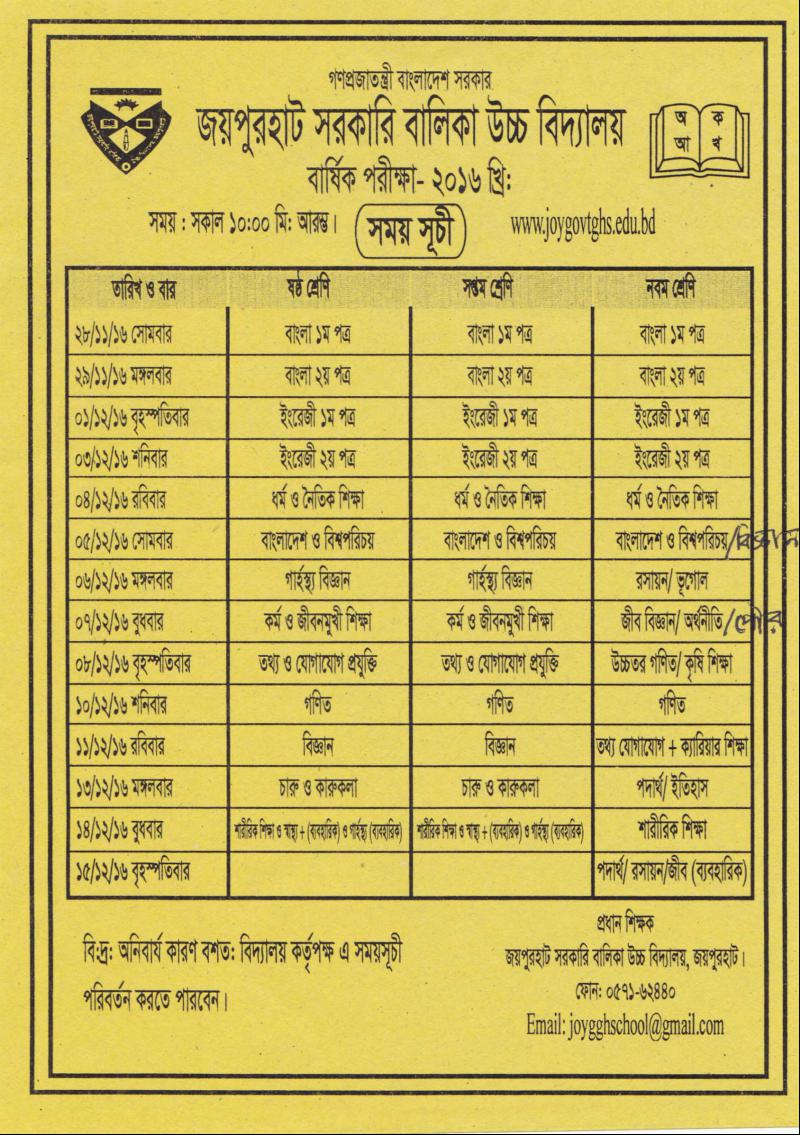 গণপ্রজাতন্ত্রী বাংলাদেশ সরকার
জয়পুরহাট সরকারি বালিকা উচ্চ বিদ্যালয়
অ ক
আ খ
বার্ষিক পরীক্ষা- ২০১৬ খ্রি:
সময় : সকাল ১০:০০ মি: আরম্ভ। সময় সূচী www.joygovtghs.edu.bd
তারিখ ও বার ষষ্ঠ শ্রেণি সপ্তম শ্রেণি নবম শ্রেণি
২৮/১১/১৬ সোমবার বাংলা ১ম পত্র বাংলা ১ম পত্র বাংলা ১ম পত্র
২৯/১১/১৬ মঙ্গলবার বাংলা ২য় পত্র বাংলা ২য় পত্র বাংলা ২য় পত্র
০১/১২/১৬ বৃহস্পতিবার ইংরেজী ১ম পত্র ইংরেজী ১ম পত্র ইংরেজী ১ম পত্র
০৩/১২/১৬ শনিবার ইংরেজী ২য় পত্র ইংরেজী ২য় পত্র ইংরেজী ২য় পত্র
০৪/১২/১৬ রবিবার ধর্ম ও নৈতিক শিক্ষা ধর্ম ও নৈতিক শিক্ষা ধর্ম ও নৈতিক শিক্ষা
০৫/১২/১৬ সোমবার বাংলাদেশ ও বিশ্বপরিচয় বাংলাদেশ ও বিশ্বপরিচয় বাংলাদেশ ও বিশ্বপরিচয়/বিজ্ঞান
০৬/১২/১৬ মঙ্গলবার গার্হস্থ্য বিজ্ঞান গার্হস্থ্য বিজ্ঞান রসায়ন/ ভূগোল
০৭/১২/১৬ বুধবার কর্ম ও জীবনমুখী শিক্ষা কর্ম ও জীবনমুখী শিক্ষা জীব বিজ্ঞান/ অর্থনীতি/পৌর
০৮/১২/১৬ বৃহস্পতিবার তথ্য ও যোগাযোগ প্রযুক্তি তথ্য ও যোগাযোগ প্রযুক্তি উচ্চতর গণিত/ কৃষি শিক্ষা
১০/১২/১৬ শনিবার গণিত গণিত গণিত
১১/১২/১৬ রবিবার বিজ্ঞান বিজ্ঞান তথ্য যোগাযোগ + ক্যারিয়ার শিক্ষা
১৩/১২/১৬ মঙ্গলবার চারু ও কারুকলা চারু ও কারুকলা পদার্থ/ ইতিহাস
১৪/১২/১৬ বুধবার শারীরিক শিক্ষা ও স্বাস্থ্য + (ব্যবহারিক) ও গার্হস্থ্য (ব্যবহারিক) শারীরিক শিক্ষা ও স্বাস্থ্য + (ব্যবহারিক) ও গার্হস্থ্য (ব্যবহারিক) শারীরিক শিক্ষা
১৫/১২/১৬ বৃহস্পতিবার পদার্থ/ রসায়ন/জীব (ব্যবহারিক)
বি:দ্র: অনিবার্য কারণ বশত: বিদ্যালয় কর্তৃপক্ষ এ সময়সূচী
পরিবর্তন করতে পারবেন।
প্রধান শিক্ষক
জয়পুরহাট সরকারি বালিকা উচ্চ বিদ্যালয়, জয়পুরহাট।
ফোন: ০৫৭১-৬২৪৪০
Email: joygghschool@gmail.com